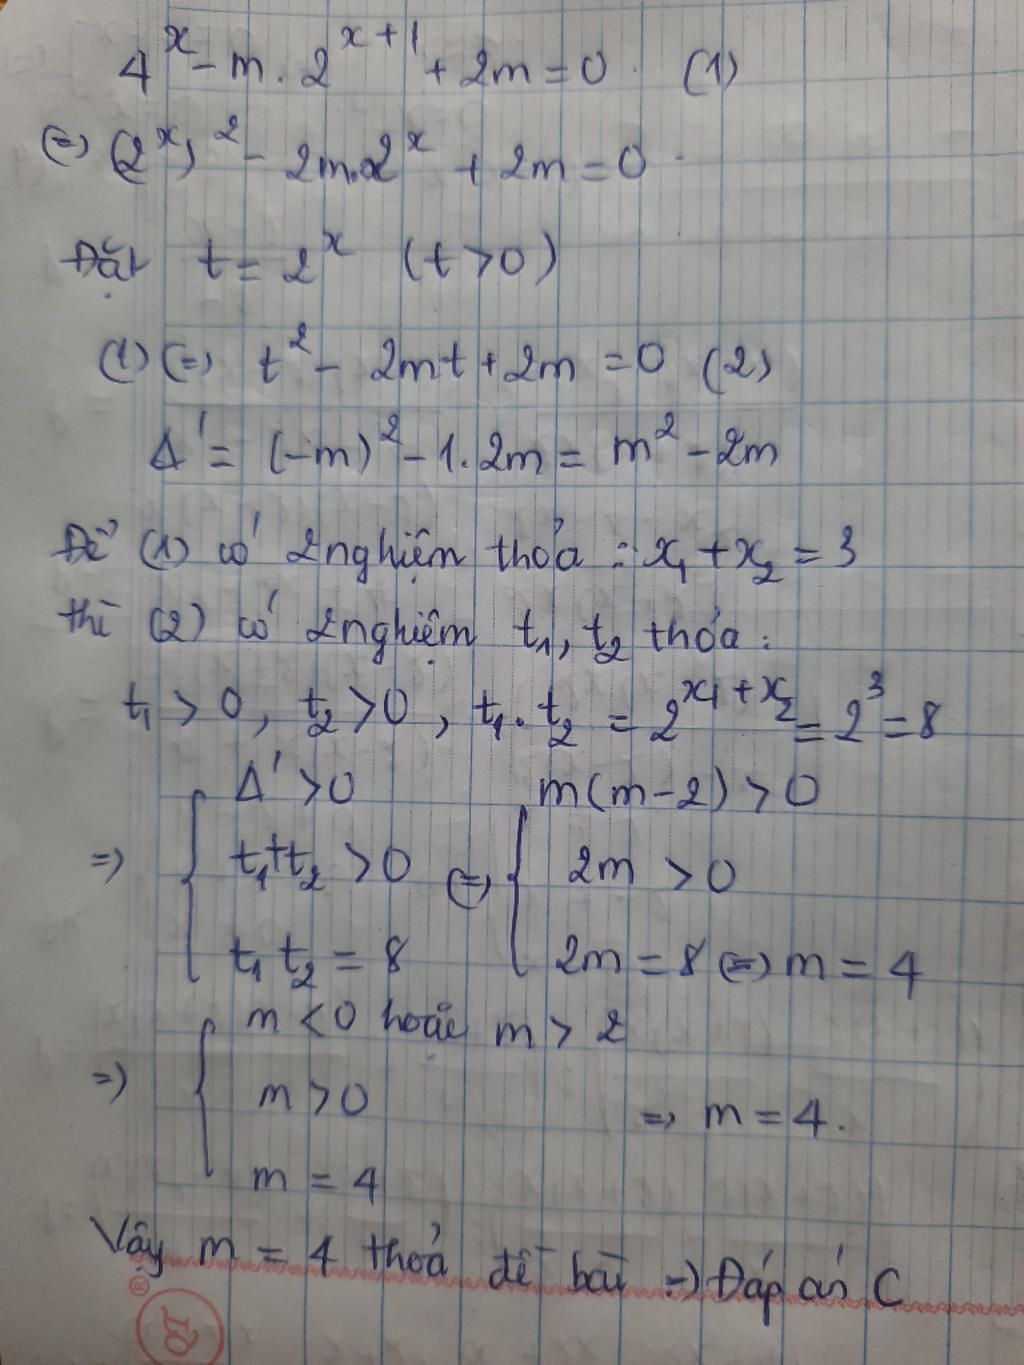 4^x - m. 2^{x+1} + 2m = 0. (1)
(=) (2^x)^2 - 2m.2^x + 2m = 0.
Đặt t = 2^x (t > 0)
(1) (=) t^2 - 2mt + 2m = 0 (2)
Δ' = (-m)^2 - 1.2m = m^2 - 2m
Để (1) có 2 nghiệm thỏa : x_1 + x_2 = 3
thì (2) có 2 nghiệm t_1, t_2 thỏa :
t_1 > 0, t_2 > 0, t_1.t_2 = 2^{x_1 + x_2} = 2^3 = 8
Δ' > 0 m(m-2) > 0
=) { t_1+t_2 > 0 (=) { 2m > 0
t_1 t_2 = 8 2m = 8 (=) m = 4
m < 0 hoặc m > 2
=) { m > 0 => m = 4.
m = 4
Vậy m = 4 thoả đề bài =) Đáp án C